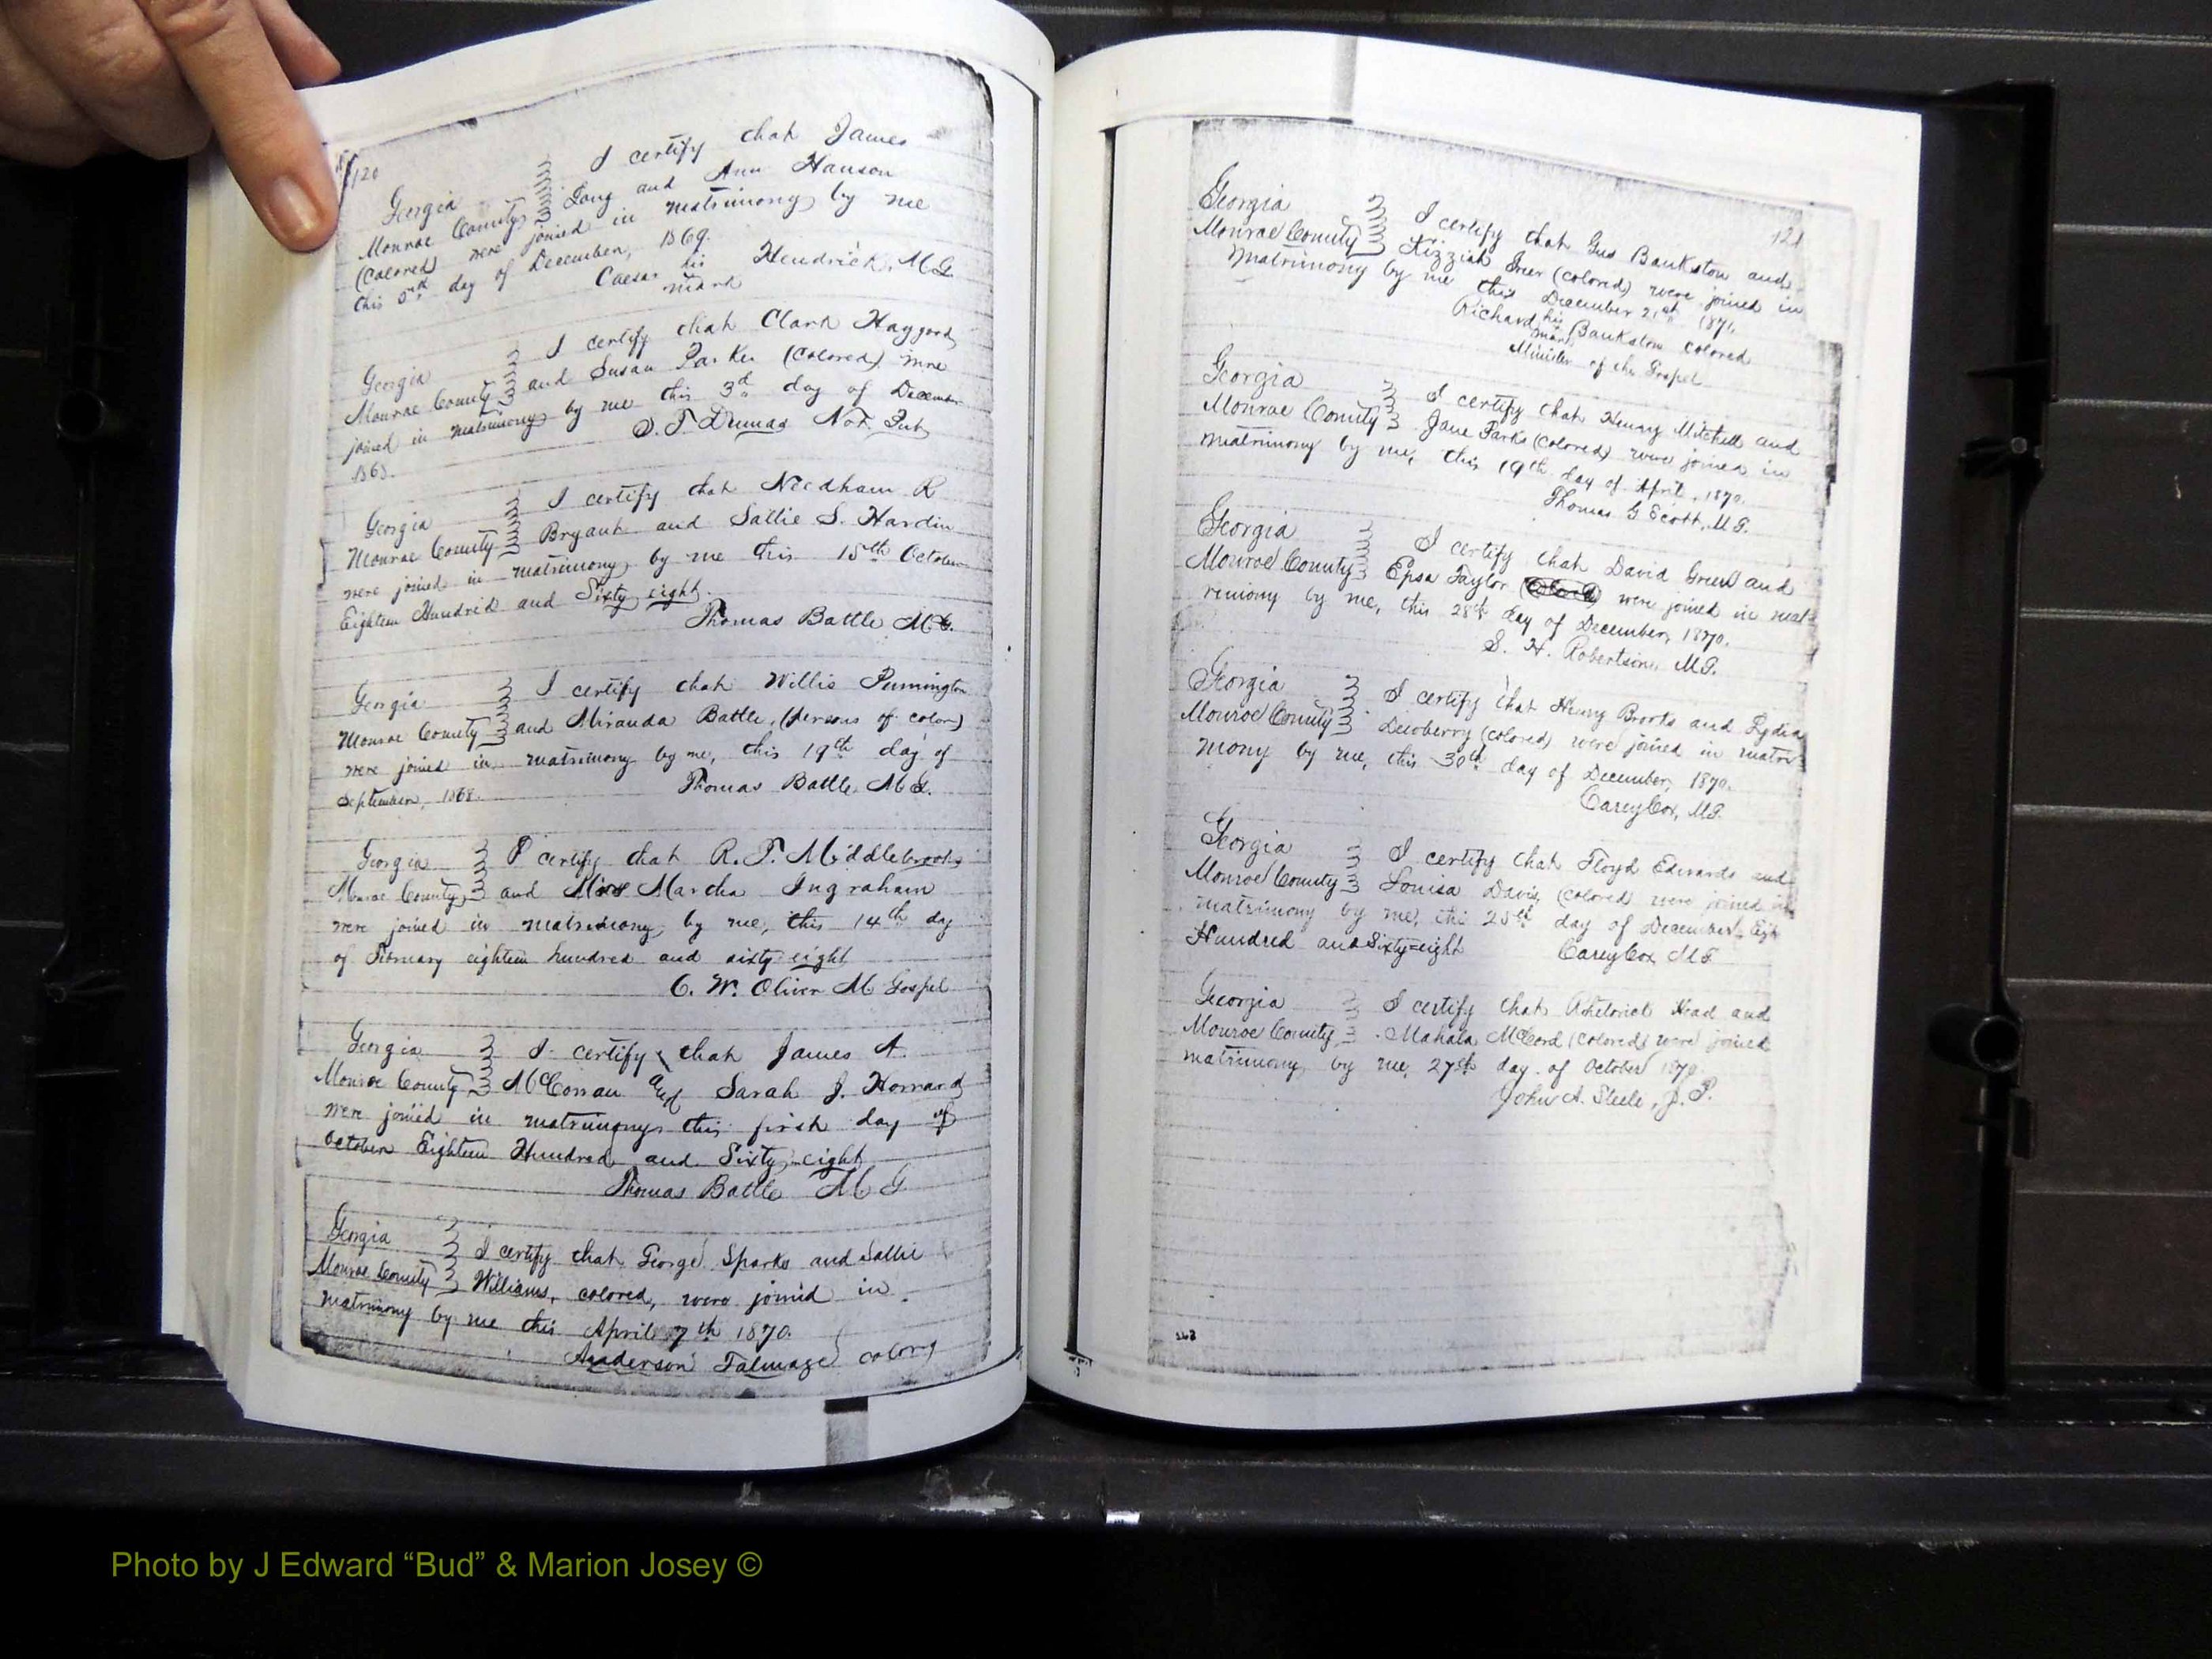 120
I certify that James
Georgia Long and Ann Hanson
Monroe County
(colored) were joined in matrimony by me
this 5th day of December, 1869.
Caesar his mark Hendrick, M G
I certify that Clark Haygood
Georgia
Monroe County and Susan Parker (colored) were
joined in matrimony by me this 3d day of December
1868. S. T. Dumas Not. Pub
I certify that Needham R
Georgia
Monroe County Bryant and Sallie S. Hardin
were joined in matrimony by me this 15th October
Eighteen Hundred and Sixty eight.
Thomas Battle M G.
Georgia I certify that Willis Pennington
Monroe County and Miranda Battle, (persons of color)
were joined in matrimony by me, this 19th day of
September, 1868. Thomas Battle, M G.
Georgia I certify that R. T. Middlebrooks
Monroe County and Miss Martha Ingraham
were joined in matrimony by me, this 14th day
of February eighteen hundred and sixty eight
C. W. Oliver M Gospel
Georgia I certify that James A.
Monroe County McCowan and Sarah J. Howard
were joined in matrimony this first day of
October Eighteen Hundred and Sixty-eight
Thomas Battle M G
Georgia I certify that George Sparks and Sallie
Monroe County Williams, colored, were joined in
matrimony by me this April 7th 1870.
Anderson Talmage colord
121
Georgia I certify that Gus Bankston and
Monroe County Kizziah Greer (colored) were joined in
matrimony by me this December 21st 1870.
Richard his mark Bankston colored
Minister of the Gospel
Georgia I certify that Henry Mitchell and
Monroe County Jane Parks (colored) were joined in
matrimony by me, this 19th day of April, 1870.
Thomas G Scott, M G.
Georgia I certify that David Green and
Monroe County Epsa Taylor were joined in mat
rimony by me, this 28th day of December, 1870.
S. H. Robertson, M G.
Georgia I certify that Henry Brooks and Lydia
Monroe County Dewberry (colored) were joined in matri
mony by me, this 30th day of December, 1870.
Carey Cox, M G.
Georgia I certify that Floyd Edwards and
Monroe County Louisa Davis (colored) were joined in
matrimony by me, this 25th day of December Eigh
Hundred and Sixty=eight Carey Cox M G
Georgia I certify that Rhetorick Head and
Monroe County Mahala McCord (colored) were joined
matrimony by me, 27th day of October 1870.
John A. Steele, J. P.
Photo by J Edward “Bud” & Marion Josey ©